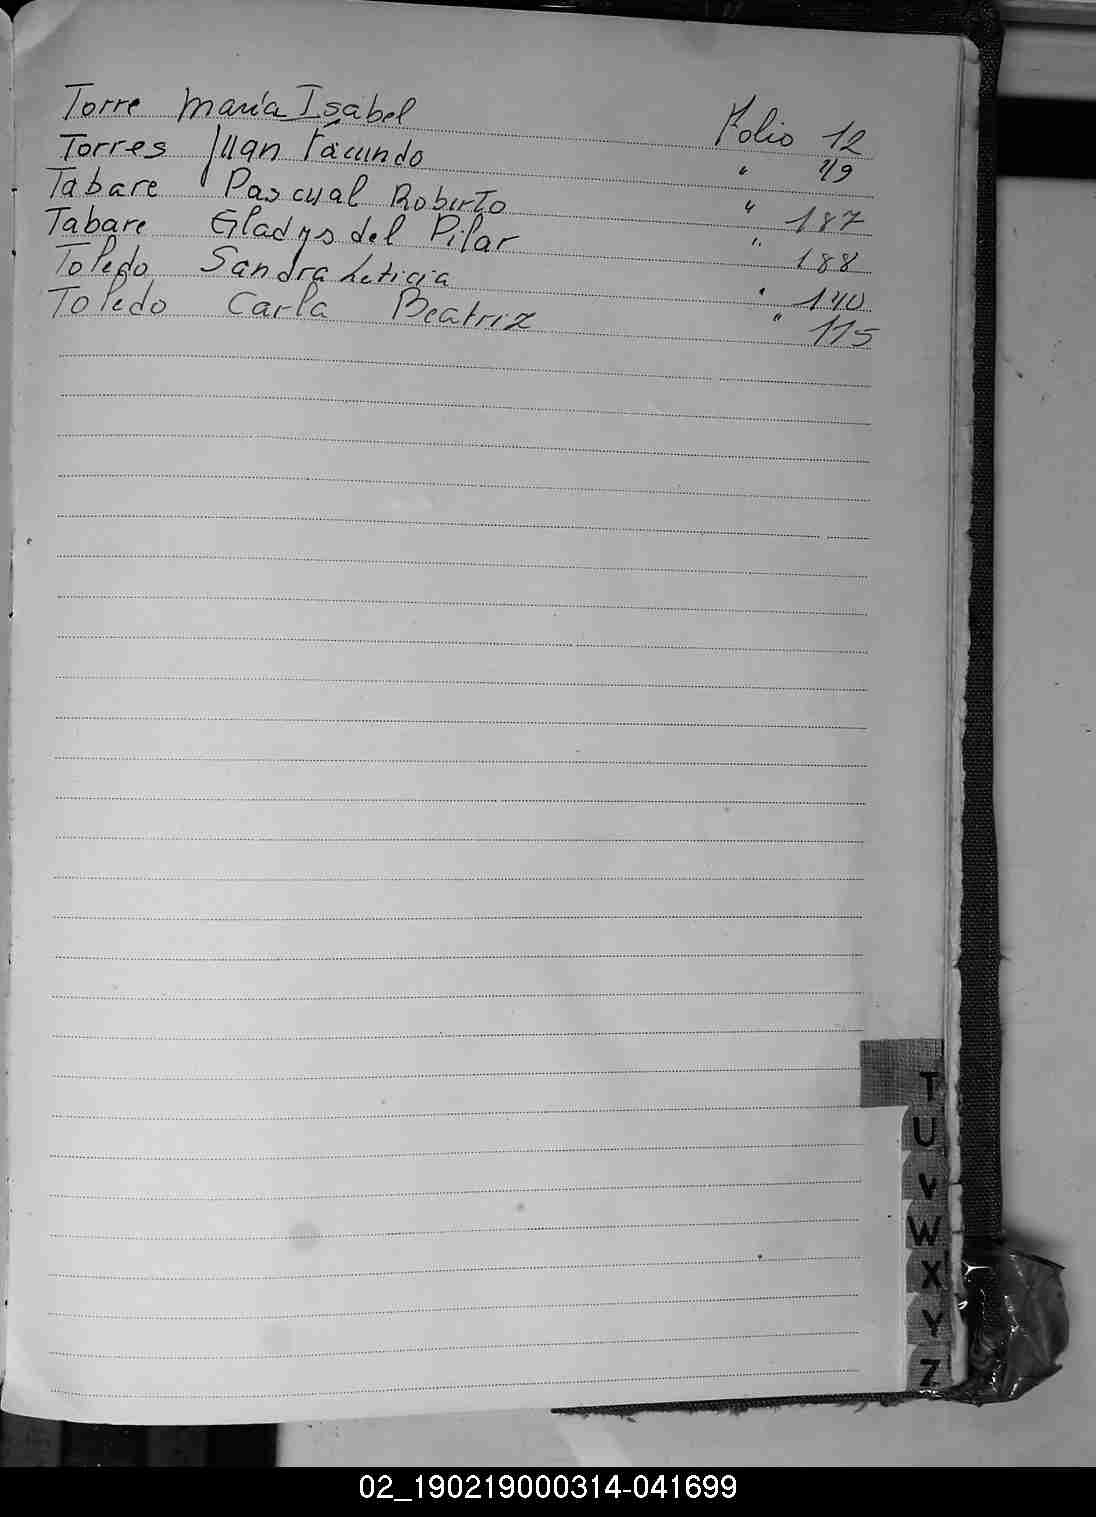 Torre Maria Isabel Folio 12
Torres Juan Facundo " 79
Tabare Pascual Roberto " 187
Tabare Gladys del Pilar " 188
Toledo Sandra Leticia "
Toledo Carla Beatriz " 115
T
U
V
W
X
Y
Z
02_190219000314-041699